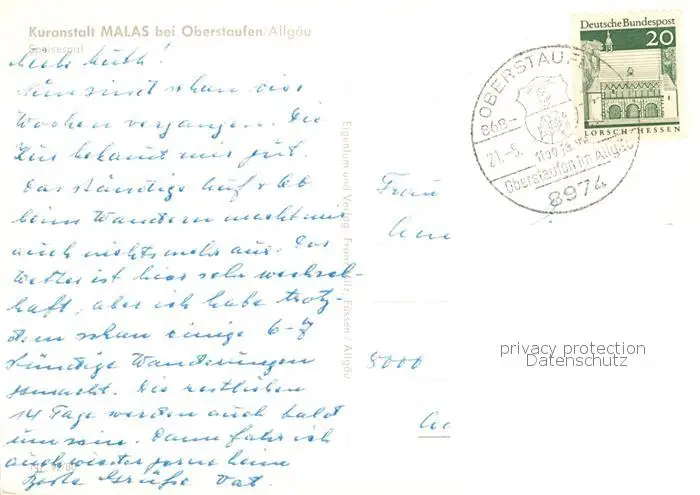 Kuranstalt MALAS bei Oberstaufen/Allgäu
Speisesaal
Nun sind schon vier
Wochen vergangen. Die
Kur bekommt mir gut.
Das ständige Auf + Ab
beim Wandern macht mir
auch nichts mehr aus. Das
Wetter ist hier sehr wechsel-
haft, aber ich habe trotz-
dem schon einige 6-7
stündige Wanderungen
gemacht. Die restlichen
14 Tage werden auch bald
um sein. Dann fahr ich
auch wieder gerne heim
Beste Grüße Vat.
Eigentum und Verlag Franz Milz, Füssen / Allgäu
Deutsche Bundespost
20
LORSCH/HESSEN
OBERSTAUFEN
868-
21.-5.
Oberstaufen im Allgäu
8974
Frau
5000
privacy protection
Datenschutz